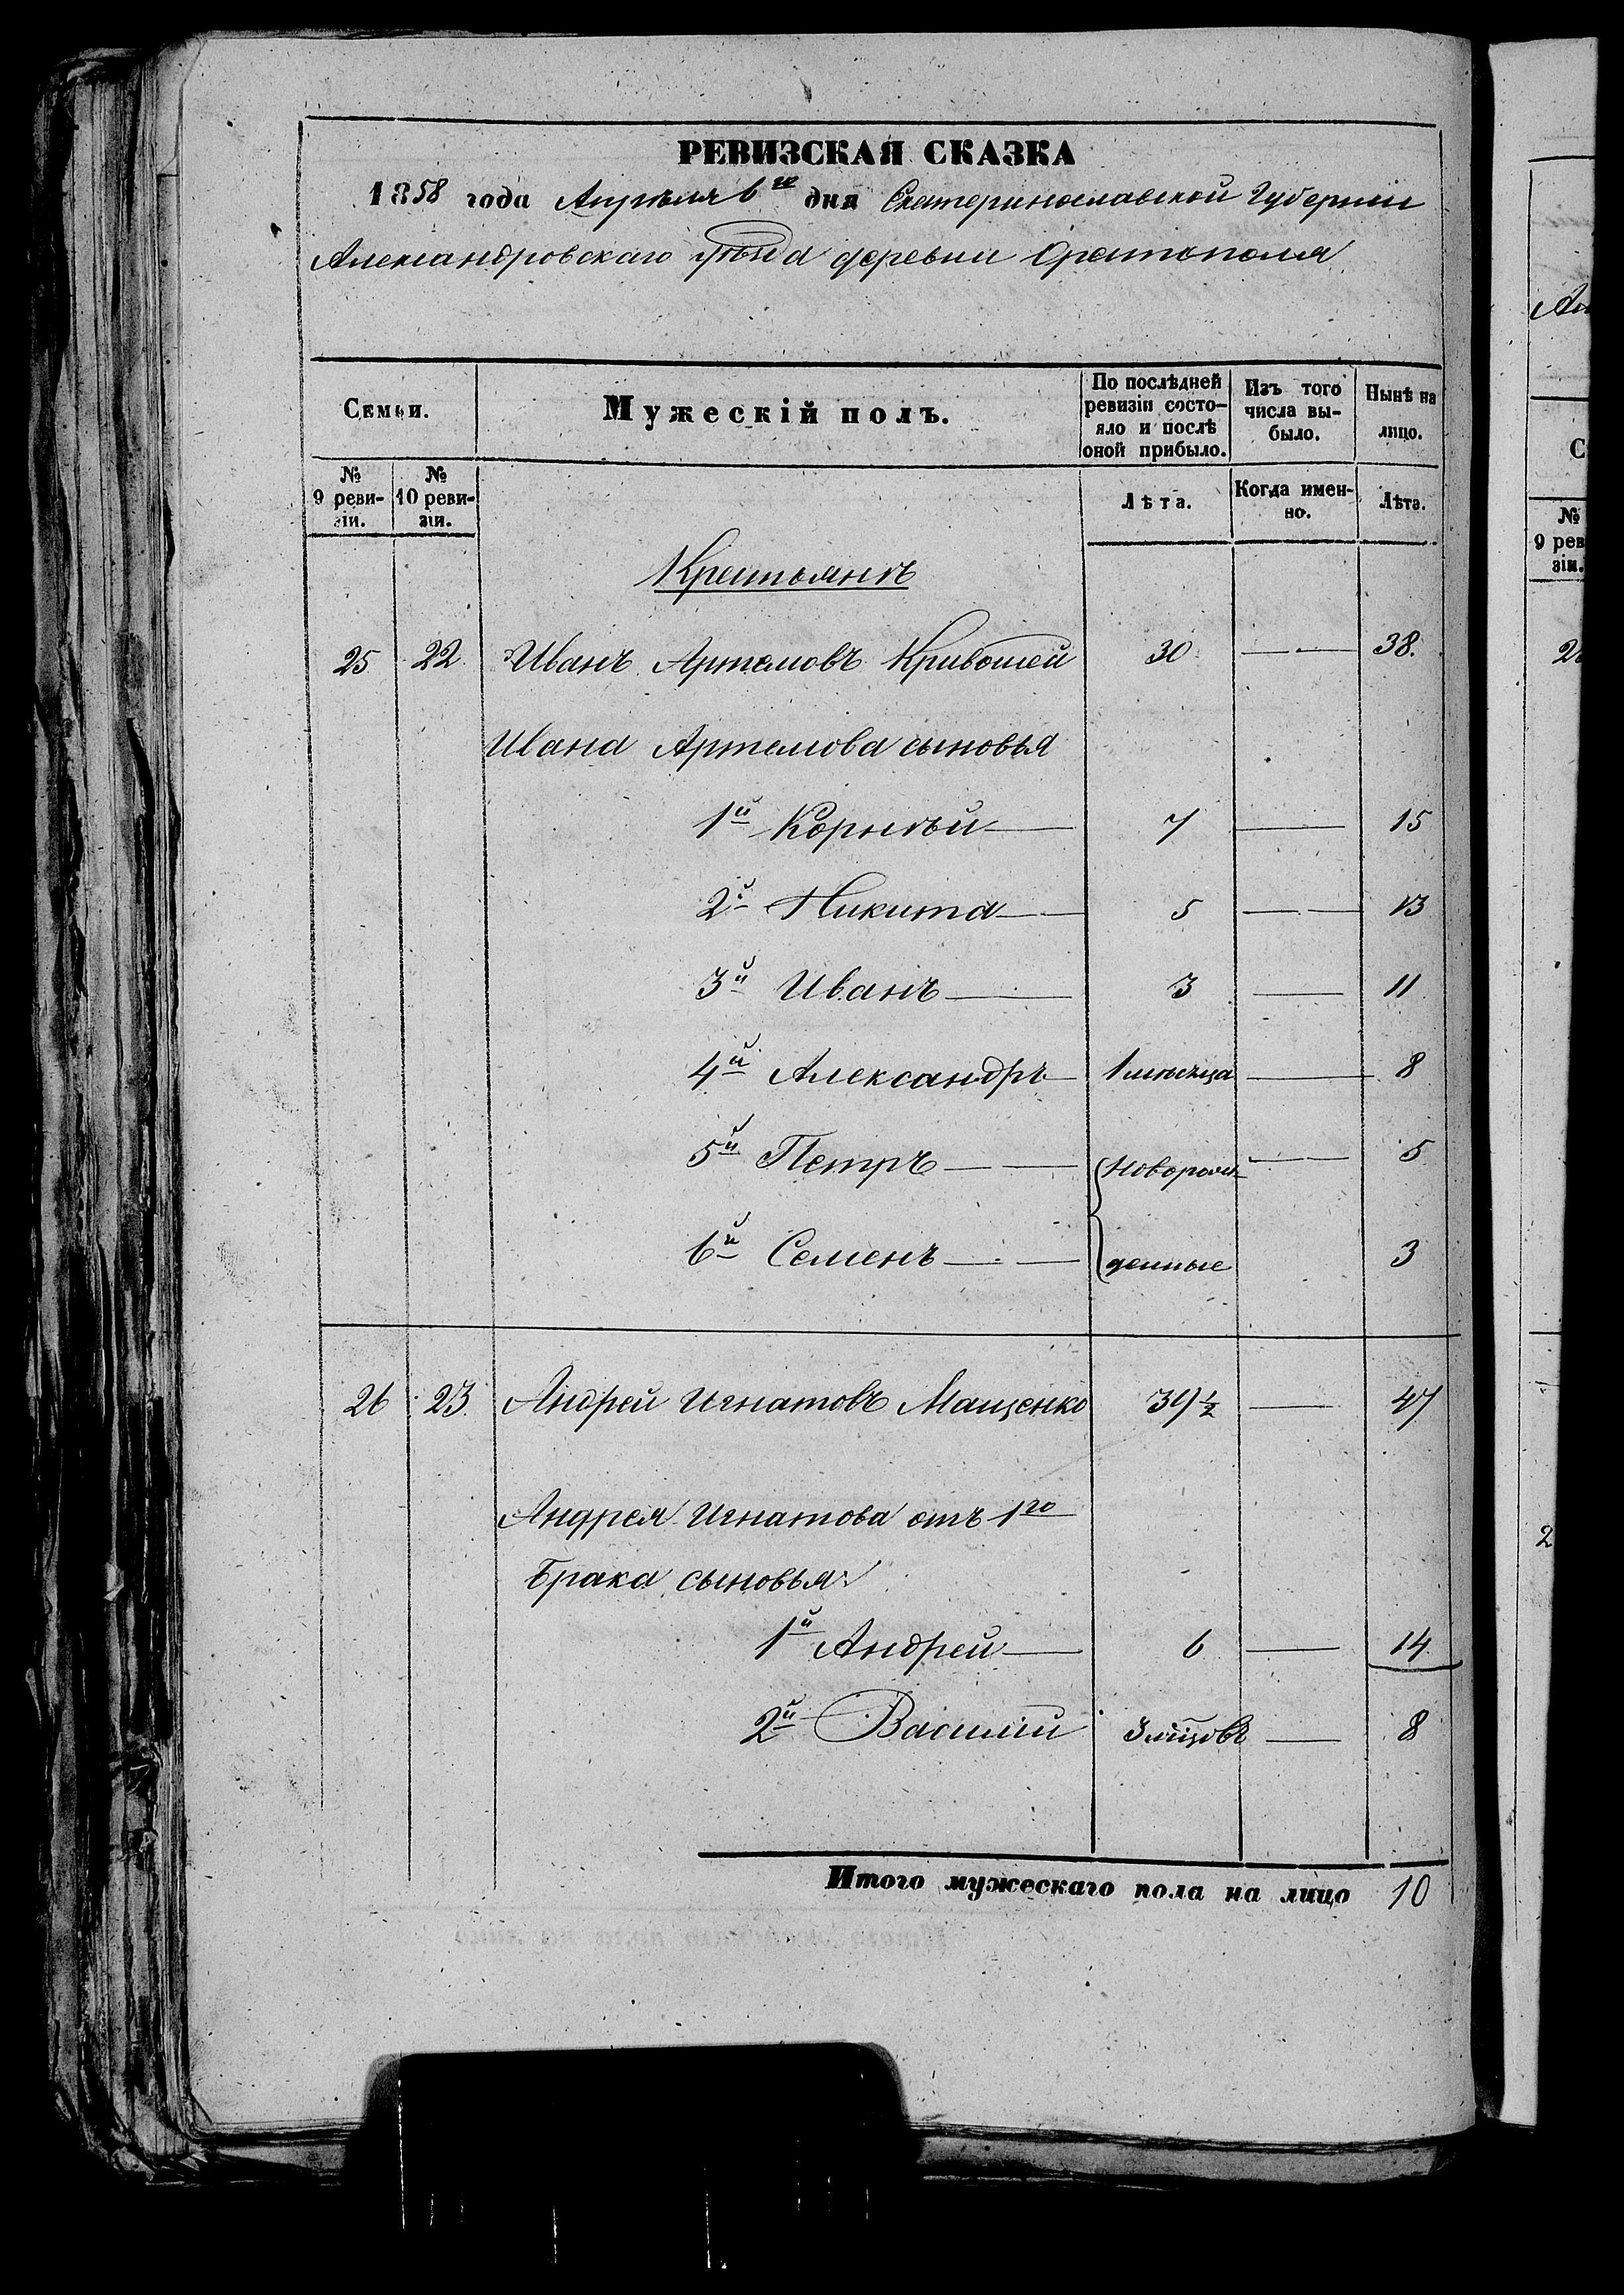 РЕВИЗСКАЯ СКАЗКА
1858 года Апрѣля 6го дня Екатеринославской Губерніи
Александровскаго уѣзда деревни Орестополя
Семьи. Мужескій полъ. По послѣдней ревизіи состо- яло и послѣ оной прибыло. Изъ того числа вы- было. Нынѣ на лицо.
№ 9 реви- зіи. № 10 реви- зіи. Лѣта. Когда имен- но. Лѣта.
Крестьянѣ
25 22 Иванъ Артемовъ Кривошей 30 — 38.
Ивана Артемова сыновья
1й Корнѣй — 7 — 15
2й Никита — 5 — 13
3й Иванъ — 3 — 11
4й Александръ — 1 мѣсяца — 8
5й Петръ — новорож- — 5
6й Семенъ — денные 3
26 23 Андрей Игнатовъ Мащенко 39½ — 47
Андрея Игнатова отъ 1го
брака сыновья
1й Андрей — 6 — 14
2й Василій 3 мѣцовъ — 8
Итого мужескаго пола на лицо 10
Ал
С
№
9 рев
зіи.
2
2